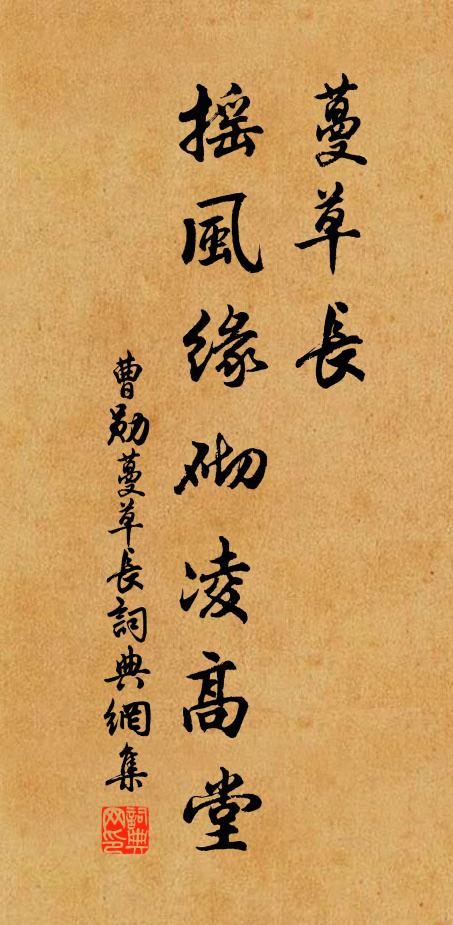 蔓草長
搖風緣砌凌高堂
曹勛蔓草長詞典網集
詞典網印